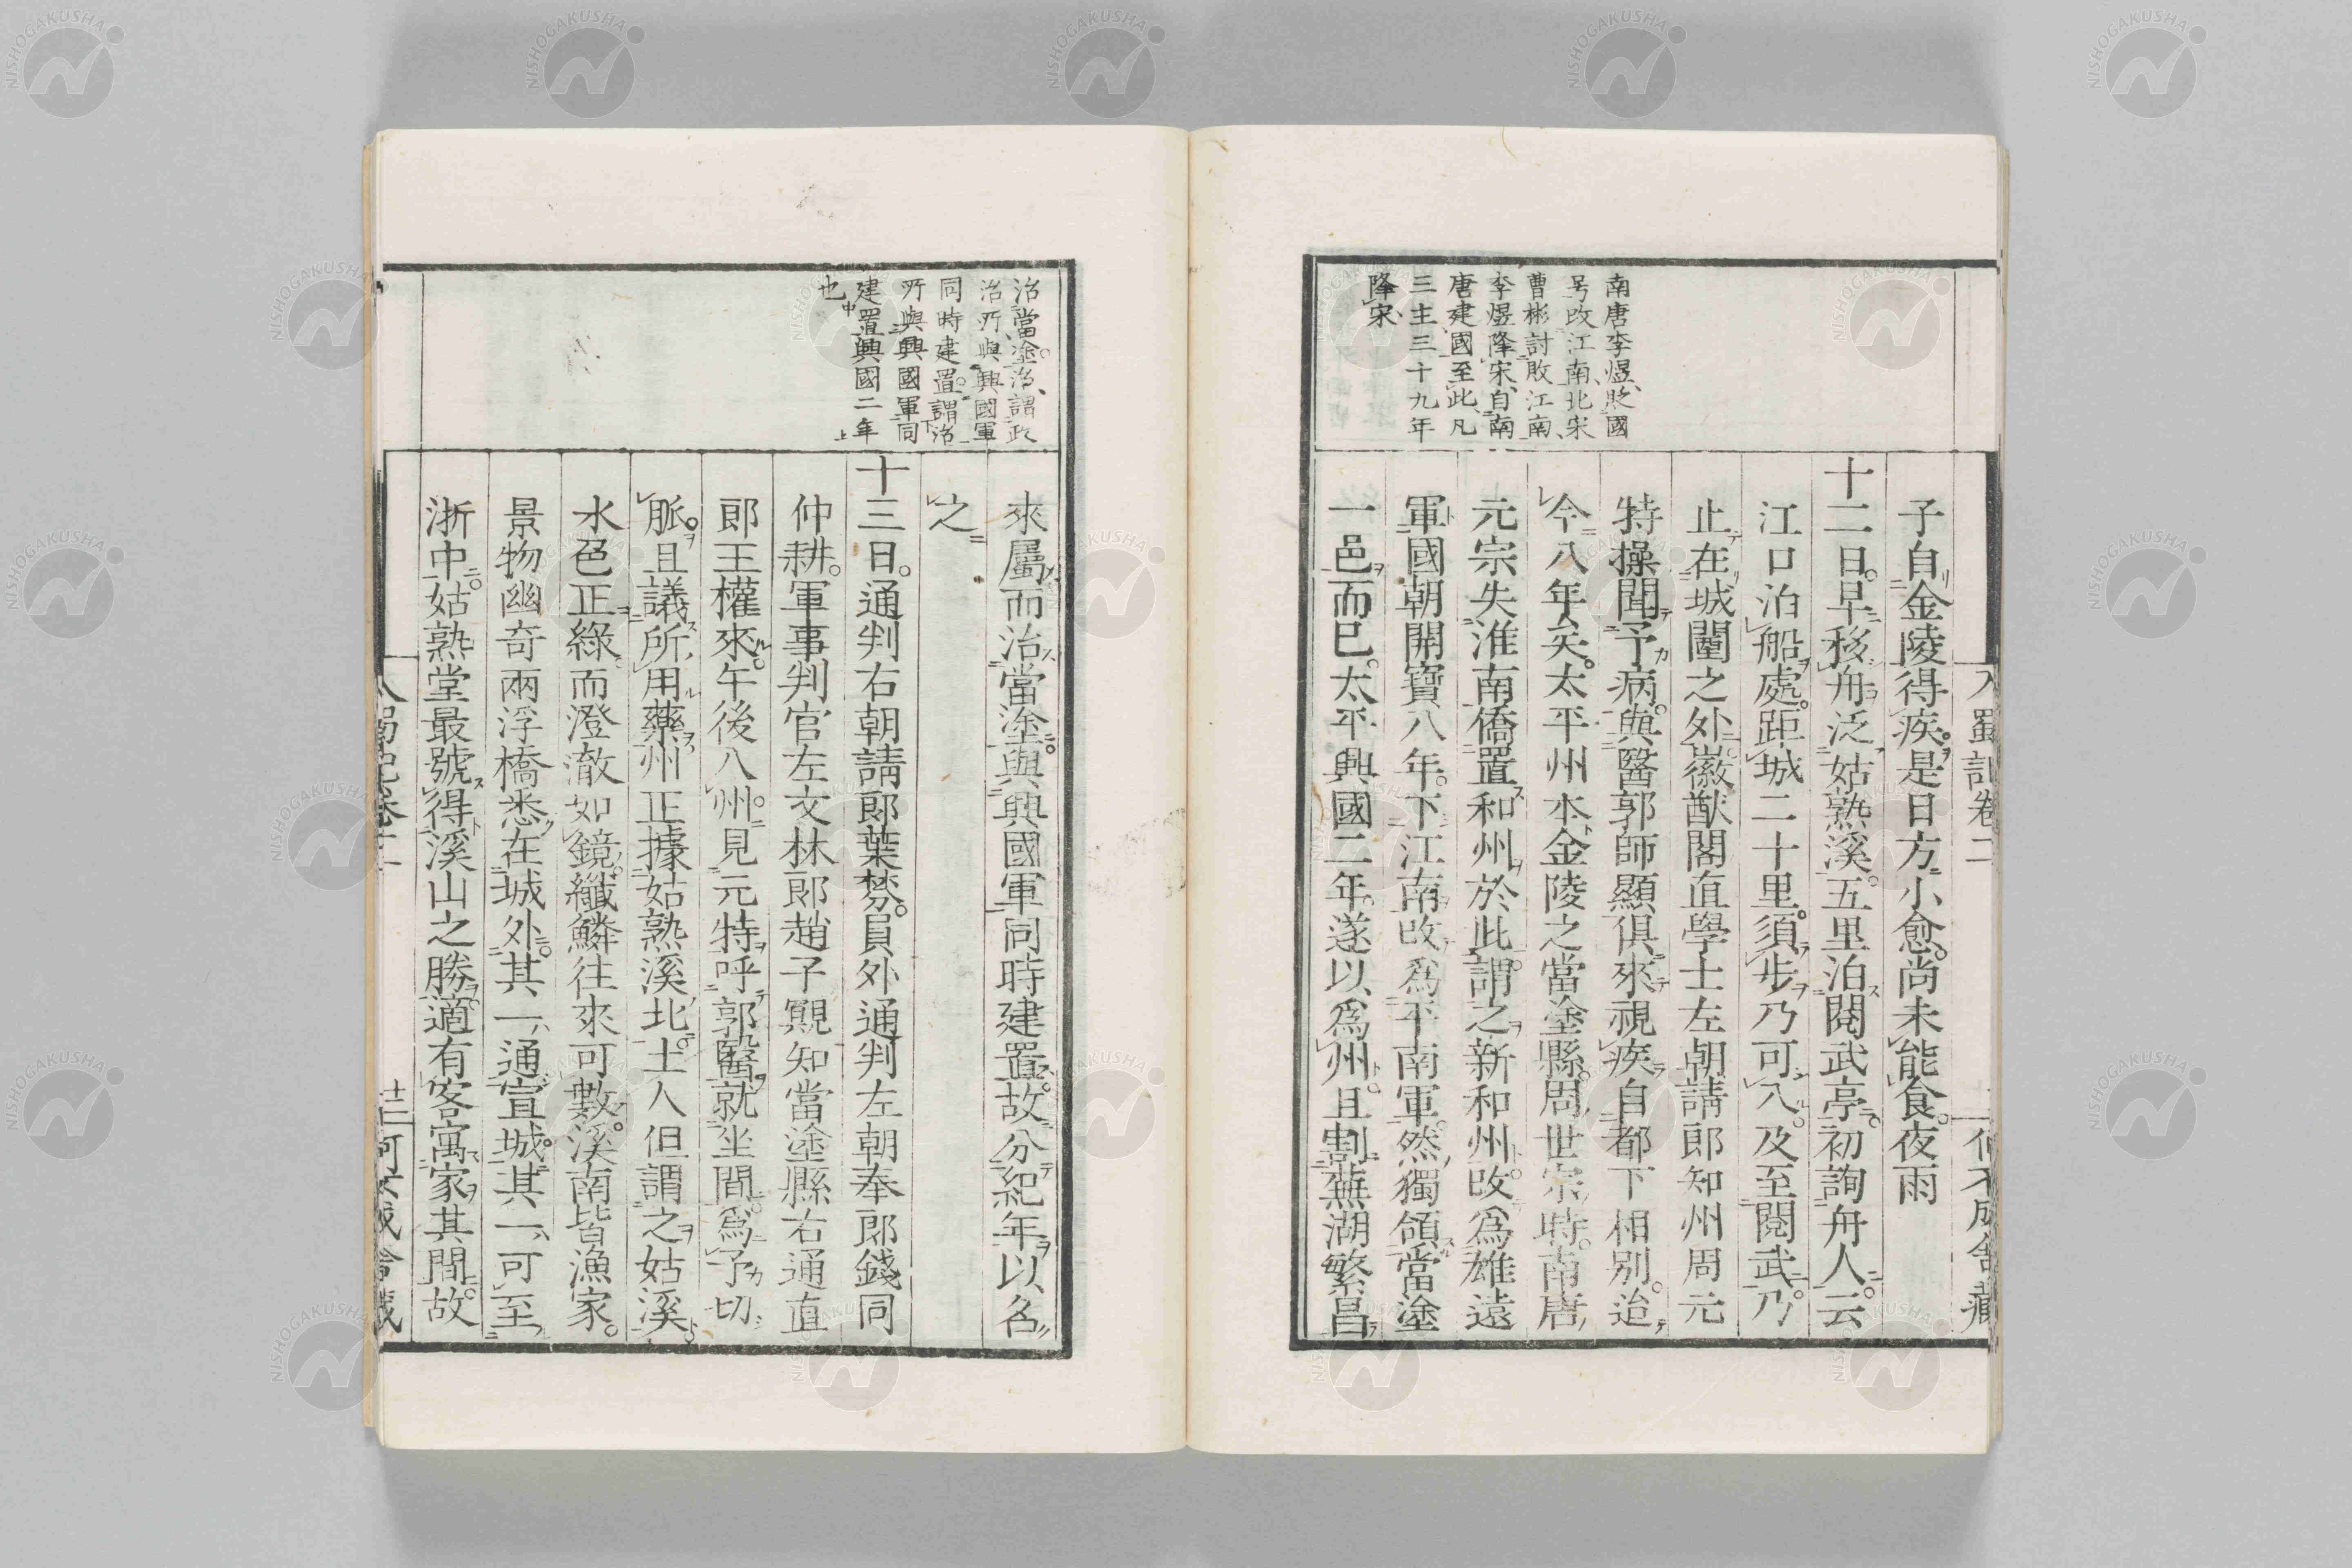 入蜀記卷二
何不成舍藏
南唐李煜貶國
号改江南北宋
曹彬討敗江南
李煜降宋自南
唐建國至此凡
三主三十九年
降宋
子自金陵得疾是日方小愈尚未能食夜雨
十二日早移舟泛姑熟溪五里泊閱武亭初詢舟人云
江口泊船處距城二十里須步乃可入及至閱武乃
止在城闉之外徽猷閣直學士左朝請郎知州周元
特操聞予病與醫郭師顯俱來視疾自都下相別迨
今八年矣太平州本金陵之當塗縣周世宗時南唐
元宗失淮南僑置和州於此謂之新和州改爲雄遠
軍國朝開寶八年下江南改爲平南軍然獨領當塗
一邑而已太平興國二年遂以爲州且割蕪湖繁昌
治當塗治謂政
治所與興國軍
同時建置謂治
所與興國軍同
建置興國二年
也
來屬而治當塗與興國軍同時建置故分紀年以名
之
十三日通判右朝請郎葉棼員外通判左朝奉郎錢同
仲耕軍事判官左文林郎趙子覿知當塗縣右通直
郎王權來午後入州見元特呼郭醫就坐間爲予切
脈且議所用藥州正據姑熟溪北土人但謂之姑溪
水色正綠而澄澈如鏡纖鱗往來可數溪南皆漁家
景物幽奇兩浮橋悉在城外其一通宣城其一可至
浙中姑熟堂最號得溪山之勝適有客寓家其間故